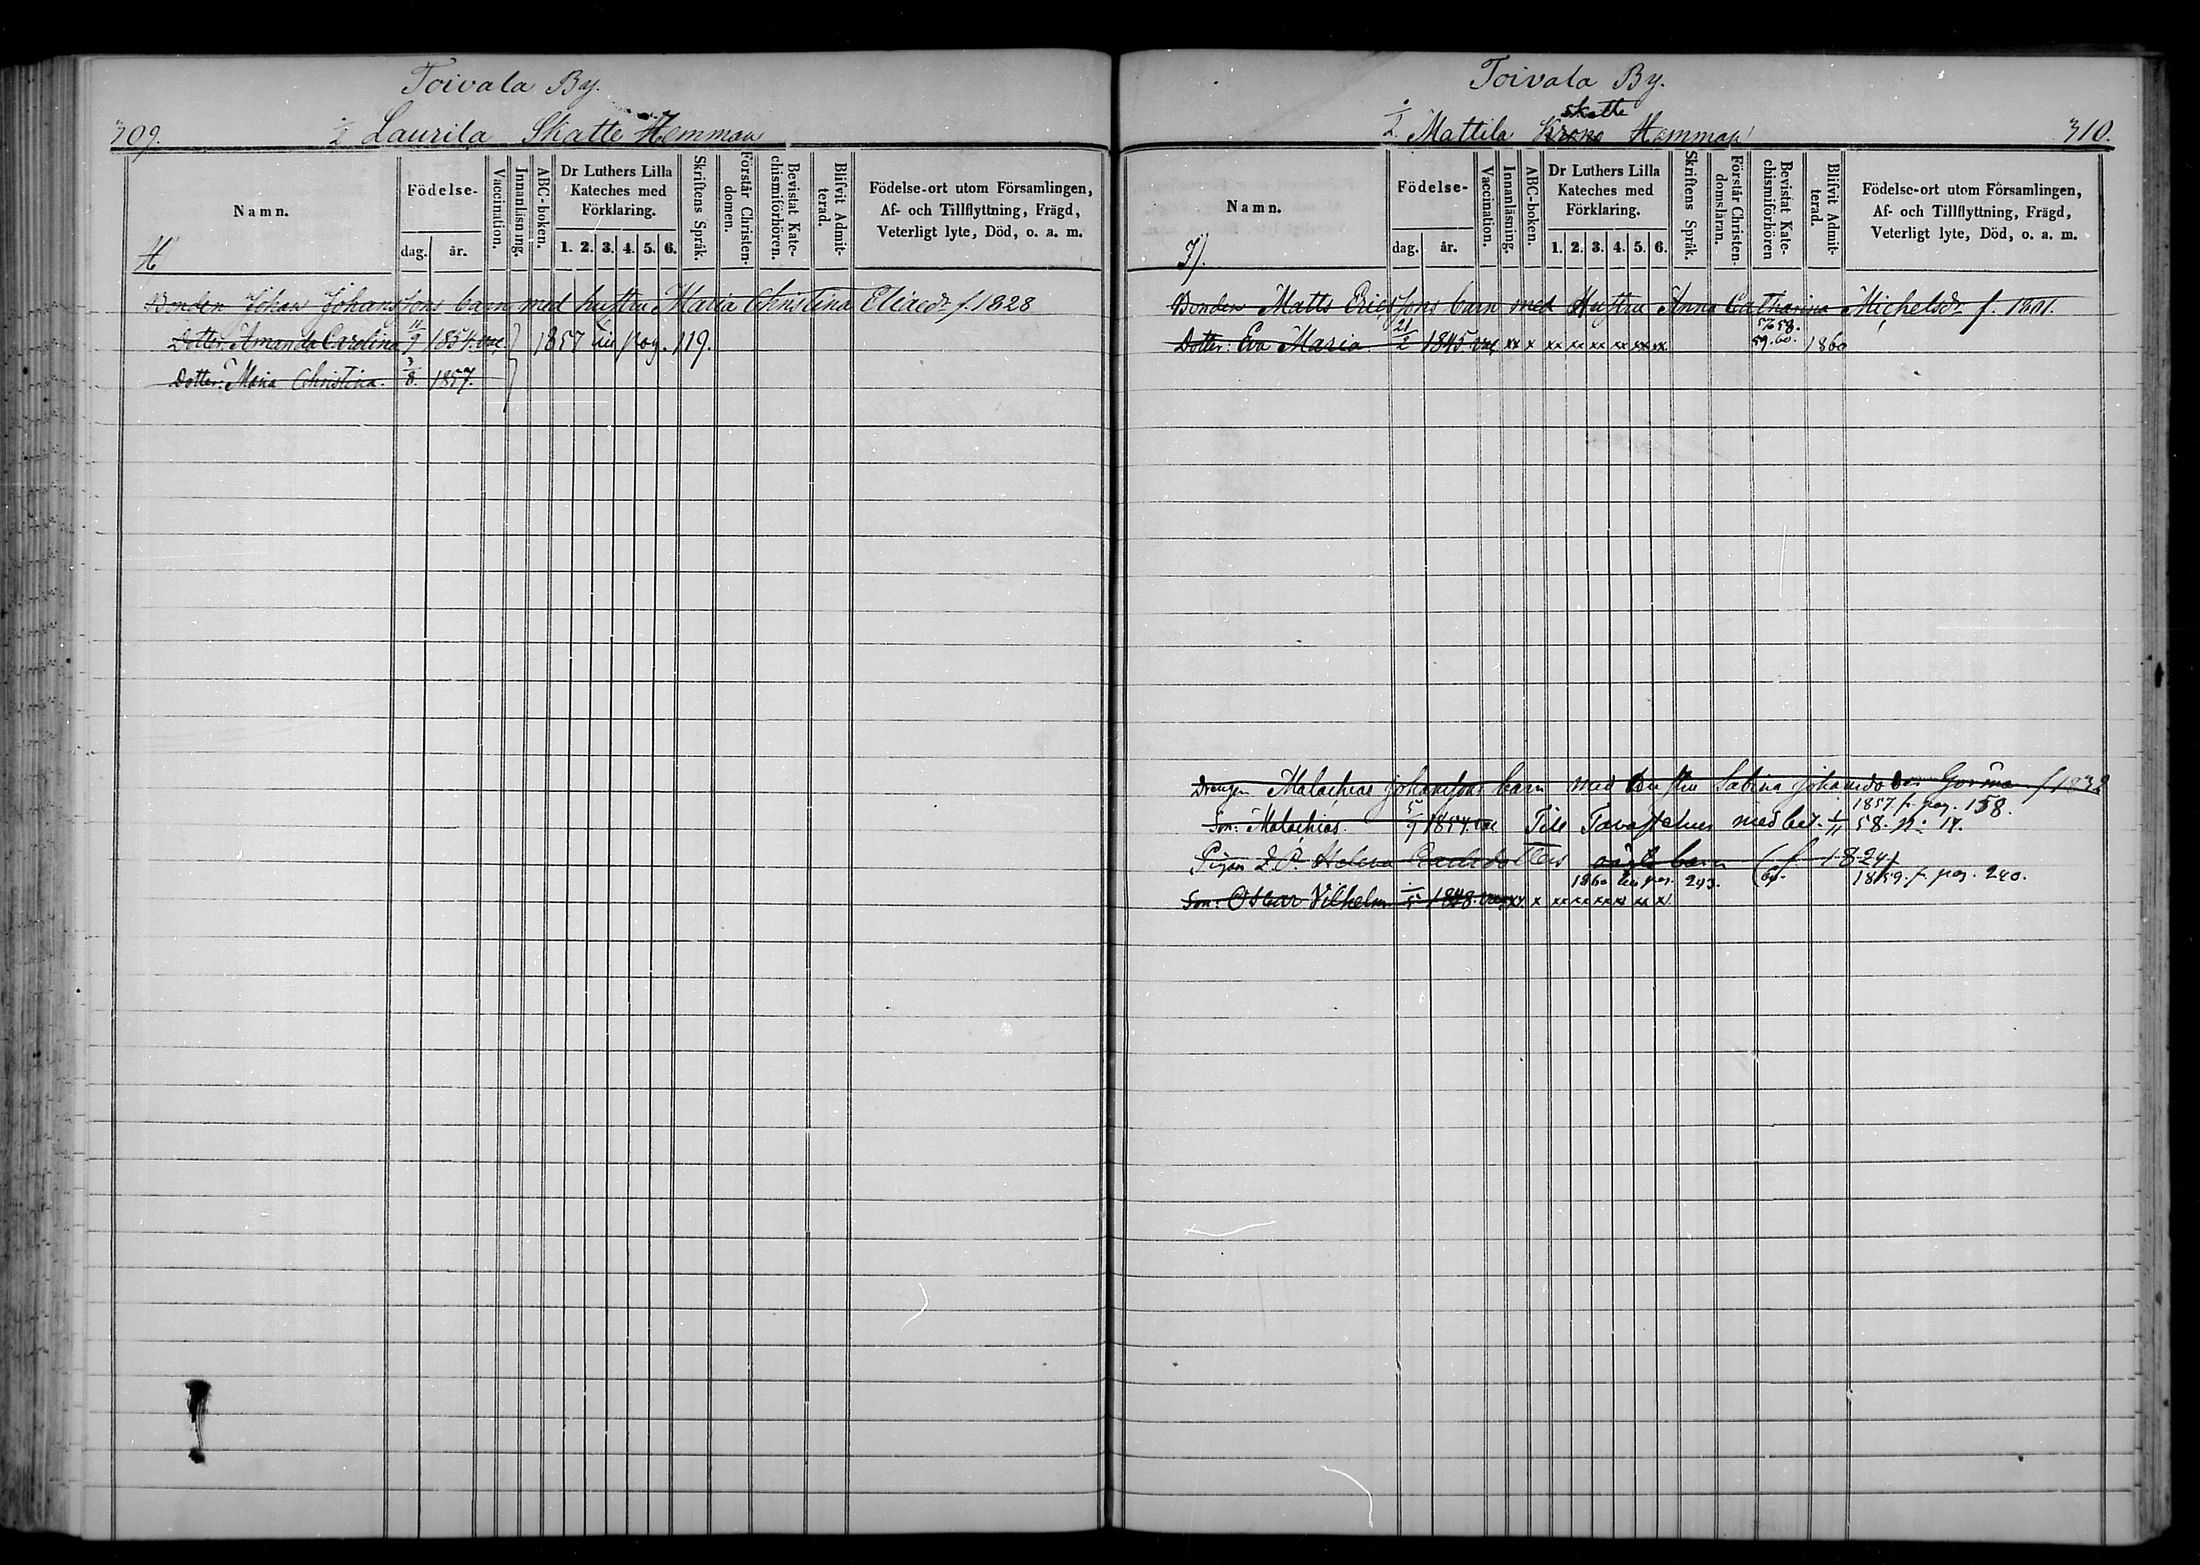 Toivala By.
309.
1/2 Laurila Skatte Hemman
Namn.
Födelse-
dag. år.
Vaccination.
Innanläsning.
ABC-boken.
Dr Luthers Lilla Kateches med Förklaring.
1. 2. 3. 4. 5. 6.
Skriftens Språk.
Förstår Christen-domen.
Bevistat Kate-chismiförhören.
Blifvit Admit-terad.
Födelse-ort utom Församlingen, Af- och Tillflyttning, Frägd, Veterligt lyte, Död, o. a. m.
H
Bonden Johan Johanssons barn med hustru Maria Christina Eliaedr f. 1828
Dotter: Amanda Carolina 11/9 1854. vac 1857 till pag. 119.
Dotter: Maria Christina. 3/8 1857.
Toivala By.
1/2 Mattila Krono skatte Hemman
310.
Namn.
Födelse-
dag. år.
Vaccination.
Innanläsning.
ABC-boken.
Dr Luthers Lilla Kateches med Förklaring.
1. 2. 3. 4. 5. 6.
Skriftens Språk.
Förstår Christen-domslaran.
Bevistat Kate-chismiförhören
Blifvit Admit-terad.
Födelse-ort utom Församlingen, Af- och Tillflyttning, Frägd, Veterligt lyte, Död, o. a. m.
Bonden Matts Ericssons barn med Hustru Anna Catharina Michelsdr f. 1801.
57 58.
Dotter: Eva Maria. 21/2 1845. vac xx x xx xx xx xx xx xx 59. 60. 1860
Drengen Malachias Johanssons barn med hustru Sabina Johansdotter f 1832
1857 f. pag. 158.
Son: Malachias. 5/9 1854. vac Till Tavastehus med bet. 1/11 58. N: 17.
Pigan I. P. Helena oägta barn (f. 1824)
1860 till pag. 293. 1859. f. pag. 240.
Son: Oskar Vilhelm 1/5 1848. vac xx x xx xx xx xx xx xx